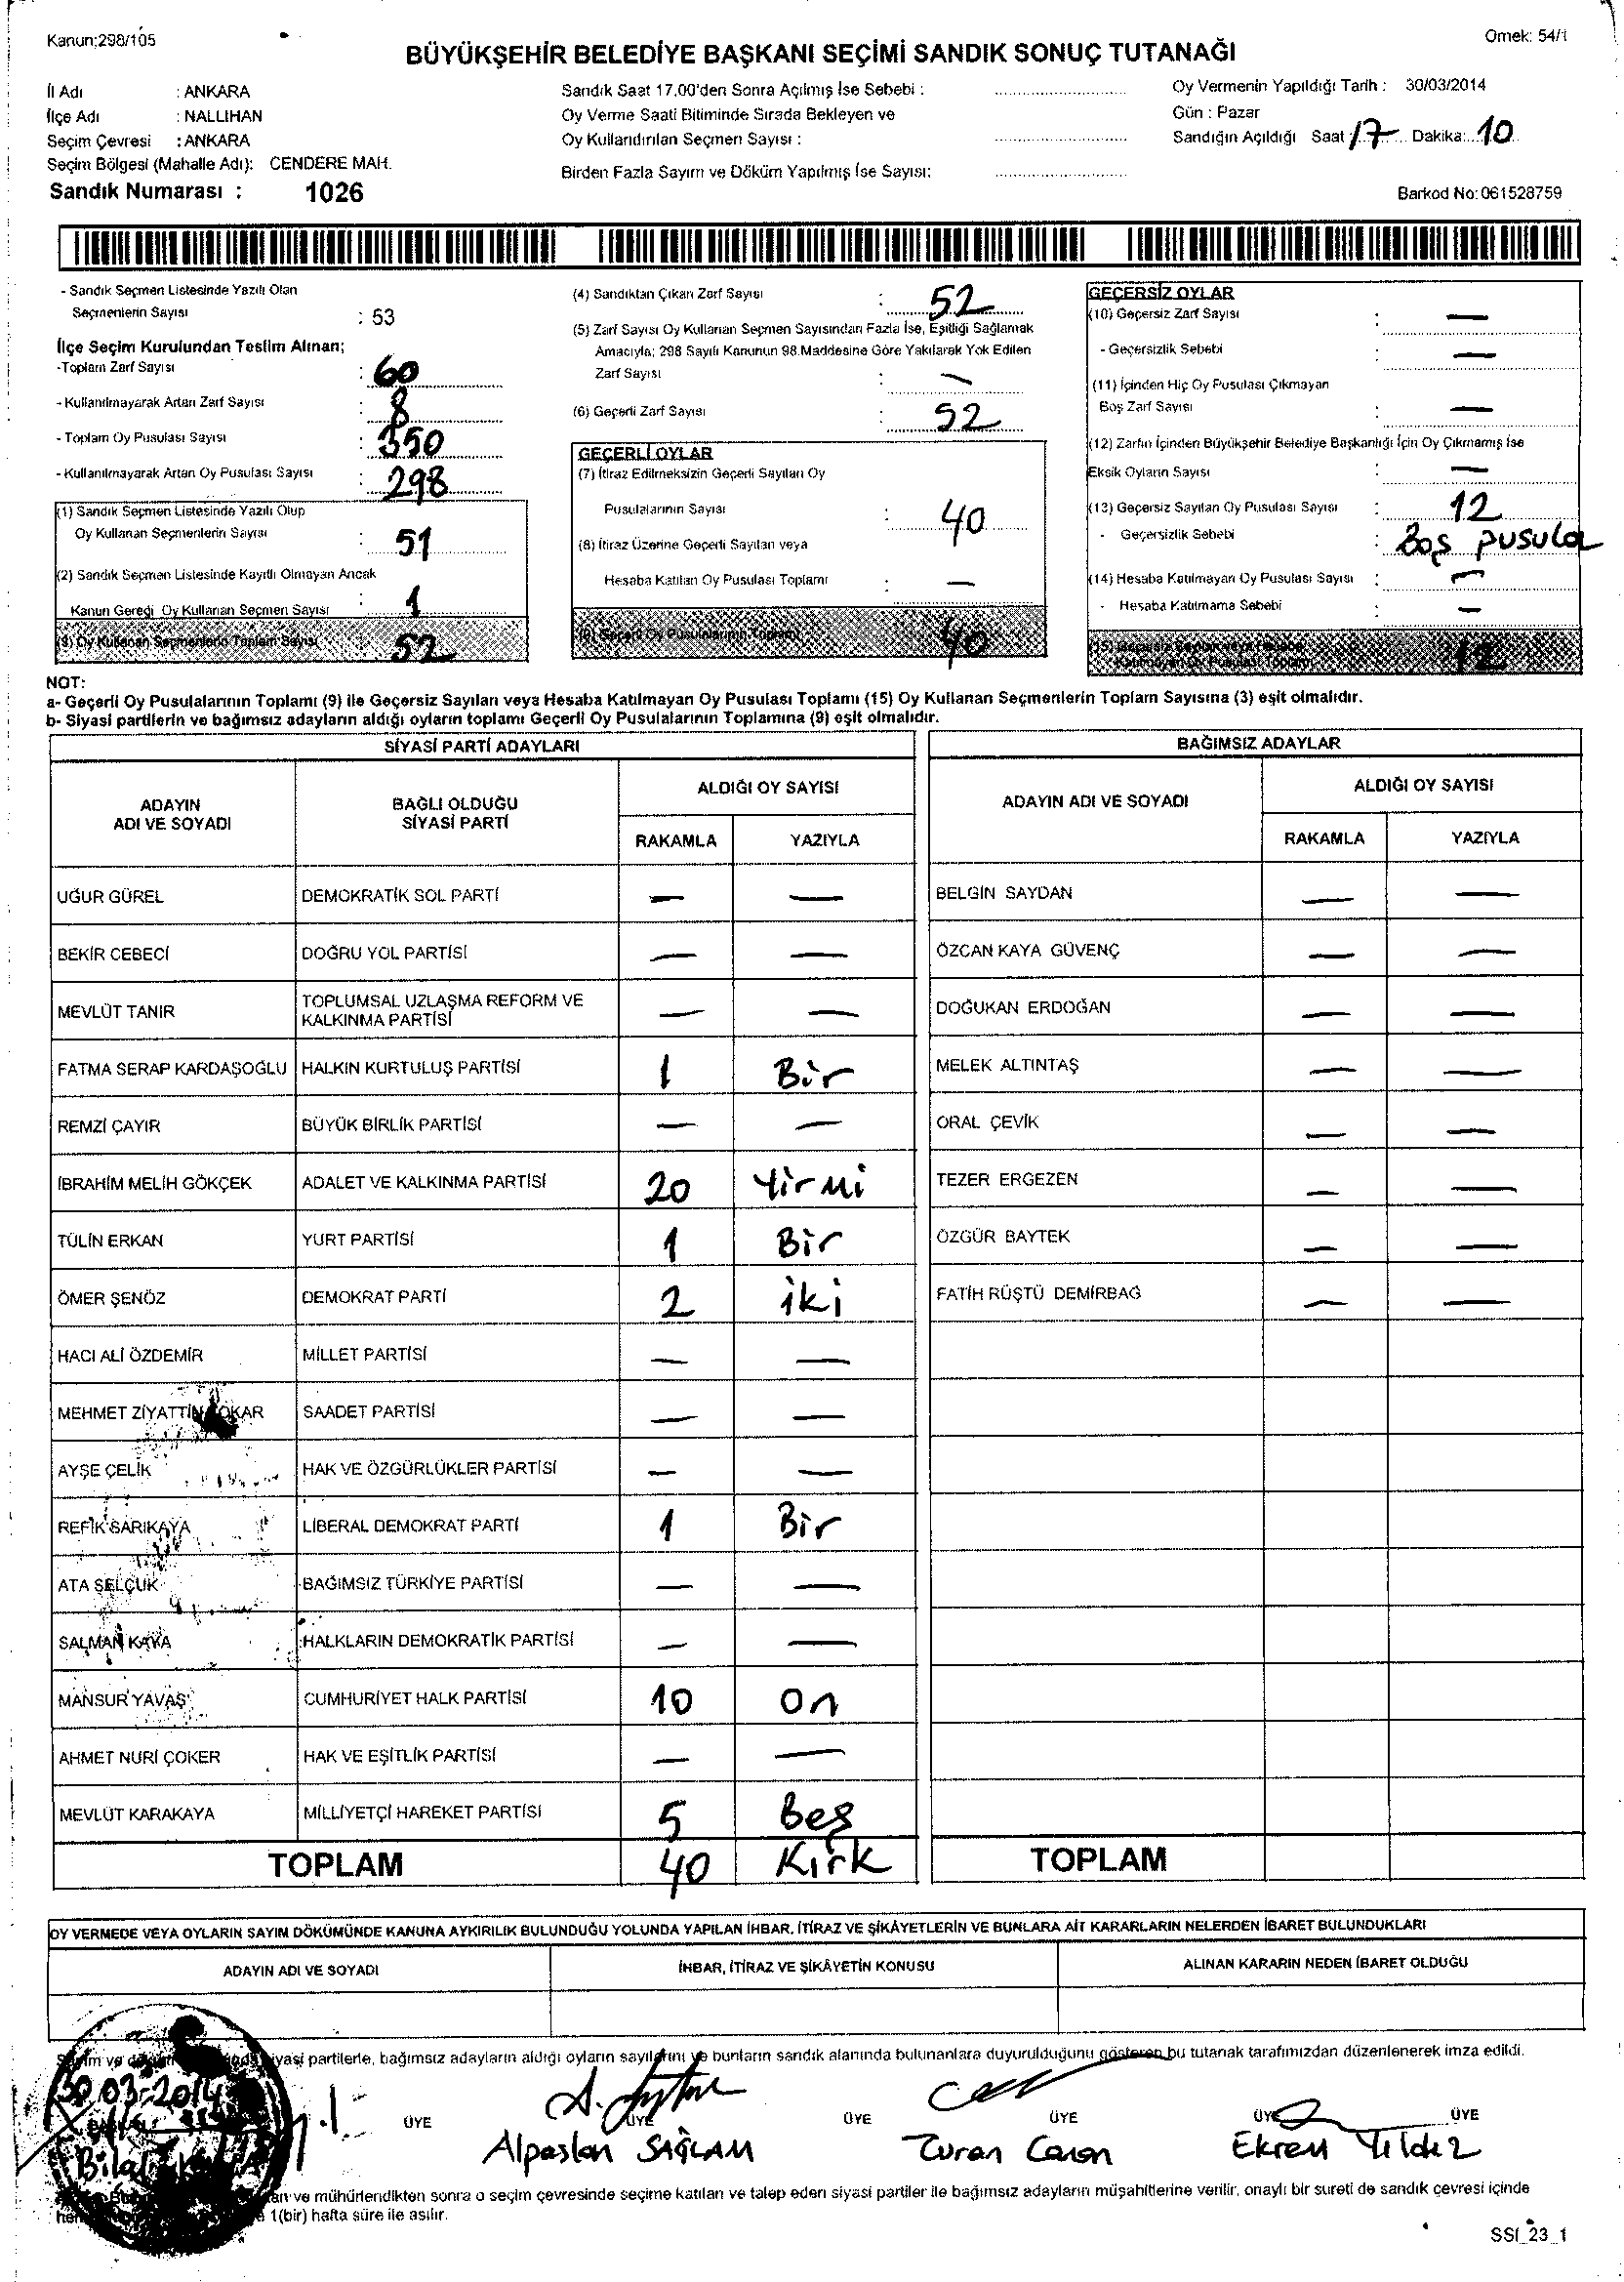 Kanun:298/105
Örnek: 54/1
BÜYÜKŞEHİR BELEDİYE BAŞKANI SEÇİMİ SANDIK SONUÇ TUTANAĞI
İl Adı : ANKARA
İlçe Adı : NALLIHAN
Seçim Çevresi : ANKARA
Seçim Bölgesi (Mahalle Adı): CENDERE MAH.
Sandık Numarası : 1026
Sandık Saat 17.00'den Sonra Açılmış İse Sebebi :
Oy Verme Saati Bitiminde Sırada Bekleyen ve
Oy Kullandırılan Seçmen Sayısı :
Birden Fazla Sayım ve Döküm Yapılmış İse Sayısı:
Oy Vermenin Yapıldığı Tarih : 30/03/2014
Gün : Pazar
Sandığın Açıldığı Saat 17 Dakika: 10
Barkod No: 061528759
- Sandık Seçmen Listesinde Yazılı Olan
Seçmenlerin Sayısı : 53
İlçe Seçim Kurulundan Teslim Alınan;
-Toplam Zarf Sayısı : 60
- Kullanılmayarak Artan Zarf Sayısı : 8
- Toplam Oy Pusulası Sayısı : 350
- Kullanılmayarak Artan Oy Pusulası Sayısı : 298
(1) Sandık Seçmen Listesinde Yazılı Olup
Oy Kullanan Seçmenlerin Sayısı : 51
(2) Sandık Seçmen Listesinde Kayıtlı Olmayan Ancak
Kanun Gereği Oy Kullanan Seçmen Sayısı : 1
(3) Oy Kullanan Seçmenlerin Toplam Sayısı : 52
(4) Sandıktan Çıkan Zarf Sayısı : 52
(5) Zarf Sayısı Oy Kullanan Seçmen Sayısından Fazla İse, Eşitliği Sağlamak
Amacıyla; 298 Sayılı Kanunun 98.Maddesine Göre Yakılarak Yok Edilen
Zarf Sayısı : —
(6) Geçerli Zarf Sayısı : 52
GEÇERLİ OYLAR
(7) İtiraz Edilmeksizin Geçerli Sayılan Oy
Pusulalarının Sayısı : 40
(8) İtiraz Üzerine Geçerli Sayılan veya
Hesaba Katılan Oy Pusulası Toplamı : —
(9) Geçerli Oy Pusulalarının Toplamı 40
GEÇERSİZ OYLAR
(10) Geçersiz Zarf Sayısı : —
- Geçersizlik Sebebi : —
(11) İçinden Hiç Oy Pusulası Çıkmayan
Boş Zarf Sayısı : —
(12) Zarfın İçinden Büyükşehir Belediye Başkanlığı İçin Oy Çıkmamış İse
Eksik Oyların Sayısı : —
(13) Geçersiz Sayılan Oy Pusulası Sayısı : 12
- Geçersizlik Sebebi : Boş pusula
(14) Hesaba Katılmayan Oy Pusulası Sayısı : —
- Hesaba Katılmama Sebebi : —
(15) Geçersiz Sayılan veya Hesaba
Katılmayan Oy Pusulası Toplamı 12
NOT:
a- Geçerli Oy Pusulalarının Toplamı (9) ile Geçersiz Sayılan veya Hesaba Katılmayan Oy Pusulası Toplamı (15) Oy Kullanan Seçmenlerin Toplam Sayısına (3) eşit olmalıdır.
b- Siyasi partilerin ve bağımsız adayların aldığı oyların toplamı Geçerli Oy Pusulalarının Toplamına (9) eşit olmalıdır.
SİYASİ PARTİ ADAYLARI
ADAYIN ADI VE SOYADI
BAĞLI OLDUĞU SİYASİ PARTİ
ALDIĞI OY SAYISI
RAKAMLA YAZIYLA
UĞUR GÜREL DEMOKRATİK SOL PARTİ — —
BEKİR CEBECİ DOĞRU YOL PARTİSİ — —
MEVLÜT TANIR TOPLUMSAL UZLAŞMA REFORM VE KALKINMA PARTİSİ — —
FATMA SERAP KARDAŞOĞLU HALKIN KURTULUŞ PARTİSİ 1 Bir
REMZİ ÇAYIR BÜYÜK BİRLİK PARTİSİ — —
İBRAHİM MELİH GÖKÇEK ADALET VE KALKINMA PARTİSİ 20 Yirmi
TÜLİN ERKAN YURT PARTİSİ 1 Bir
ÖMER ŞENÖZ DEMOKRAT PARTİ 2 iki
HACI ALİ ÖZDEMİR MİLLET PARTİSİ — —
MEHMET ZİYATTİN SAADET PARTİSİ — —
AYŞE ÇELİK HAK VE ÖZGÜRLÜKLER PARTİSİ — —
REFİK SARIKAYA LİBERAL DEMOKRAT PARTİ 1 Bir
ATA SELÇUK BAĞIMSIZ TÜRKİYE PARTİSİ — —
SALMAN KAYA HALKLARIN DEMOKRATİK PARTİSİ — —
MANSUR YAVAŞ CUMHURİYET HALK PARTİSİ 10 On
AHMET NURİ ÇOKER HAK VE EŞİTLİK PARTİSİ — —
MEVLÜT KARAKAYA MİLLİYETÇİ HAREKET PARTİSİ 5 Beş
TOPLAM 40 Kırk
BAĞIMSIZ ADAYLAR
ADAYIN ADI VE SOYADI
ALDIĞI OY SAYISI
RAKAMLA YAZIYLA
BELGİN SAYDAN — —
ÖZCAN KAYA GÜVENÇ — —
DOĞUKAN ERDOĞAN — —
MELEK ALTINTAŞ — —
ORAL ÇEVİK — —
TEZER ERGEZEN — —
ÖZGÜR BAYTEK — —
FATİH RÜŞTÜ DEMİRBAĞ — —
TOPLAM
OY VERMEDE VEYA OYLARIN SAYIM DÖKÜMÜNDE KANUNA AYKIRILIK BULUNDUĞU YOLUNDA YAPILAN İHBAR, İTİRAZ VE ŞİKÂYETLERİN VE BUNLARA AİT KARARLARIN NELERDEN İBARET BULUNDUKLARI
ADAYIN ADI VE SOYADI
İHBAR, İTİRAZ VE ŞİKÂYETİN KONUSU
ALINAN KARARIN NEDEN İBARET OLDUĞU
siyasi partilerle, bağımsız adayların aldığı oyların sayılarını ve bunların sandık alanında bulunanlara duyurulduğunu gösteren bu tutanak tarafımızdan düzenlenerek imza edildi.
30.03.2014
ÜYE ÜYE ÜYE ÜYE ÜYE ÜYE
Bilal
Alpaslan SAĞLAM
Turan Canan
Ekrem Yıldız
ve mühürlendikten sonra o seçim çevresinde seçime katılan ve talep eden siyasi partiler ile bağımsız adayların müşahitlerine verilir, onaylı bir sureti de sandık çevresi içinde
1(bir) hafta süre ile asılır.
SSI_23_1